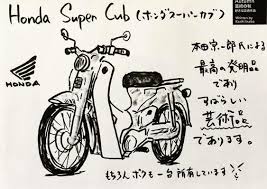 Honda Super Cub (ホンダスーパーカブ)
HONDA
本田宗一郎氏による
最高の発明品
であり
すばらしい
芸術品
であります。
もちろんボクも一台所有しています